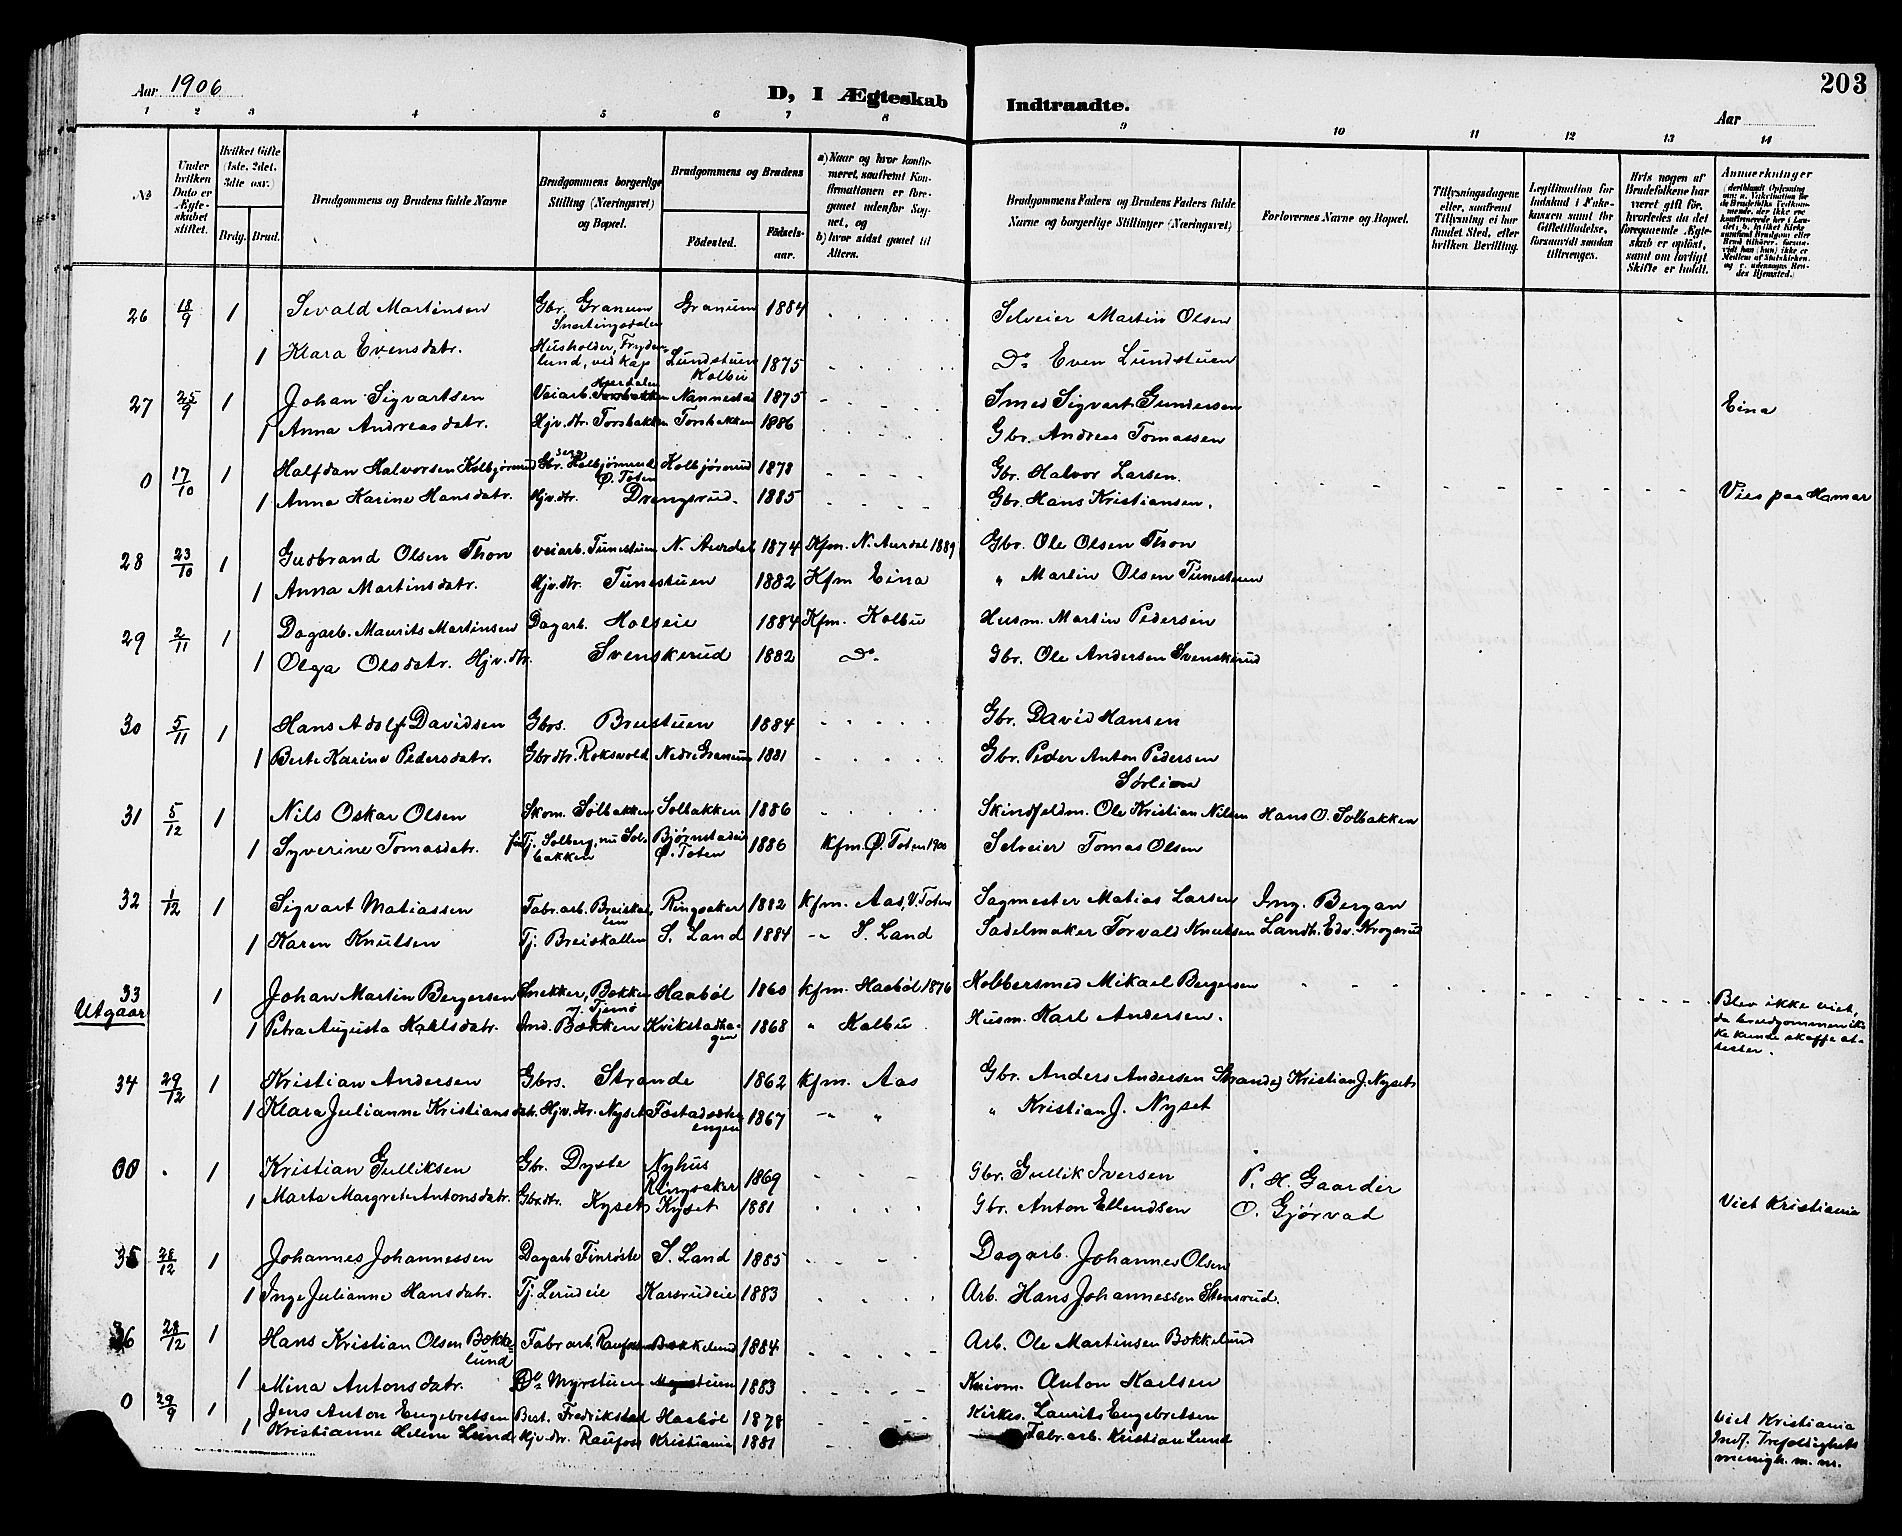 Aar 1906
D, I Ægteskab Indtraadte.
203
Aar
1 2 3 4 5 6 7 8 9 10 11 12 13 14
No
Under hvilken Dato er Ægteskabet stiftet.
Hvilket Gifte (1ste, 2det, 3die osv.)
Brdg. Brud.
Brudgommens og Brudens fulde Navne
Brudgommens borgerlige Stilling (Næringsvei) og Bopæl.
Brudgommens og Brudens
Fødested.
Fødselsaar.
a) Naar og hvor konfirmeret, saafremt Konfirmationen er foregaaet udenfor Sognet, og
b) hvor sidst gaaet til Alters.
Brudgommens Faders og Brudens Faders fulde Navne og borgerlige Stillinger (Næringsvei)
Forlovernes Navne og Bopæl.
Tillysningsdagene eller, saafremt Tillysning ei har fundet Sted, efter hvilken Bevilling.
Legitimation for Indskud i Enkekassen samt for Giftetilladelse, forsaavidt saadan tiltrænges.
Hvis nogen af Brudefolkene har været gift før, hvorledes da det foregaaende Ægteskab er opløst, samt om lovligt Skifte er holdt.
Anmærkninger
26 18/9 1 Sevald Martinsen Gbr. Granum Snertingsdalen Granum 1884 Selveier Martin Olsen
1 Klara Evensdatr. Husholder, Frydenlund, ved Kap Lundstuen Kolbu 1875 Do Even Lundstuen
27 25/9 1 Johan Sigvartsen Veiarb. Torsbakken Nannestad 1875 Smed Sigvart Gundersen Eina
1 Anna Andreasdatr. Hjv.dtr. Torsbakken Torsbakken 1886 Gbr. Andreas Tomassen
0 17/10 1 Halfdan Halvorsen Kolbjørnrud Gbr. Kolbjørnrud Ø. Toten Kolbjørnrud 1878 Gbr. Halvor Larsen.
1 Anna Karine Hansdatr. Hjv.dtr. Drengsrud. 1885 Gbr. Hans Kristiansen. Vies paa Hamar
28 23/10 1 Gudbrand Olsen Thon veiarb. Tunestuen N. Aurdal 1874 Kfm. N. Aurdal 1889 Gbr. Ole Olsen Thon
1 Anna Martinsdatr. Hjv.dtr. Tunestuen 1882 Kfm Eina " Martin Olsen Tunestuen
29 2/11 1 Dagarb. Maurits Martinsen Dagarb. Holseie 1884 Kfm. Kolbu Husm. Martin Pedersen
1 Olga Olsdatr. Hjv.dtr. Svenskerud 1882 Do. Gbr. Ole Andersen Svenskerud
30 5/11 1 Hans Adolf Davidsen Gbrs. Breistuen 1884 Gbr. David Hansen
1 Berte Karine Pedersdatr. Gbrdtr. Roksvold Nedre Granum 1881 Gbr. Peder Anton Pedersen Sørlien
31 5/12 1 Nils Oskar Olsen Skom. Solbakken Solbakken 1886 Skindfeldm. Ole Kristian Nilsen Hans O. Solbakken
1 Syverine Tomasdatr. før Tj. Solberg, nu Solbakken Bjørnstadeie Ø. Toten 1886 Kfm. Ø. Toten 1900 Selveier Tomas Olsen
32 1/12 1 Sigvart Matiassen Fabr.arb. Breiskallen Ringsaker 1882 Kfm. Aas, V. Toten Sagmester Matias Larsen Ing. Bergan
1 Karen Knutsen Tj. Breiskallen S. Land 1884 -"- S. Land Sadelmaker Torvald Knutsen Landh. Edv. Krogerud
33 Utgaar 1 Johan Martin Bergersen Snekker, Bækken v. Tjernø Haabøl 1860 Kfm. Haabøl 1876 Kobbersmed Mikael Bergersen Blev ikke viet, da brudgommen ikke kunde skaffe attester.
1 Petra Augusta Kahlsdatr. Ind. Bækken Kvikstadhagen 1868 " Kolbu. Husm. Karl Andersen.
34 29/12 1 Kristian Andersen Gbrs. Strande 1862 Kfm. Aas Gbr. Anders Andersen Strande Kristian J. Nyset
1 Klara Julianne Kristiansdatr. Hjv.dtr. Nyset 1867 -" " " Kristian J. Nyset
00 . 1 Kristian Gulliksen Gbr. Dyste Nyhus Ringsaker 1869 Gbr. Gullik Iversen P. H. Gaarder
1 Marta Margrete Antonsdatr. Gbr.dtr. Kyset Kyset 1881 Gbr. Anton Ellendsen O. Gjørvad Viet Kristiania
35 28/12 1 Johannes Johannessen Dagarb Finröste S. Land 1885 Dagarb. Johannes Olsen
1 Inge Julianne Hansdatr. Tj. Lerudeie Karsrudeie 1883 Arb. Hans Johannessen Stensrud.
36 28/12 1 Hans Kristian Olsen Bækkelund Fabrarb. Raufoss Bækkelund 1884 Arb. Ole Martinsen Bækkelund
1 Mina Antonsdatr. Do. Myrstuen Myrstuen 1883 Knivm. Anton Karlsen
0 29/9 1 Jens Anton Engebretsen Best. Fredrikstad Haabøl 1878 Kirkes. Laurits Engebretsen
1 Kristianne Helene Lund Hjv.dtr. Raufoss Kristiania 1881 Fabr.arb. Kristian Lund Viet Kristiania Indf. Trefoldigheds menigh. m. nr.